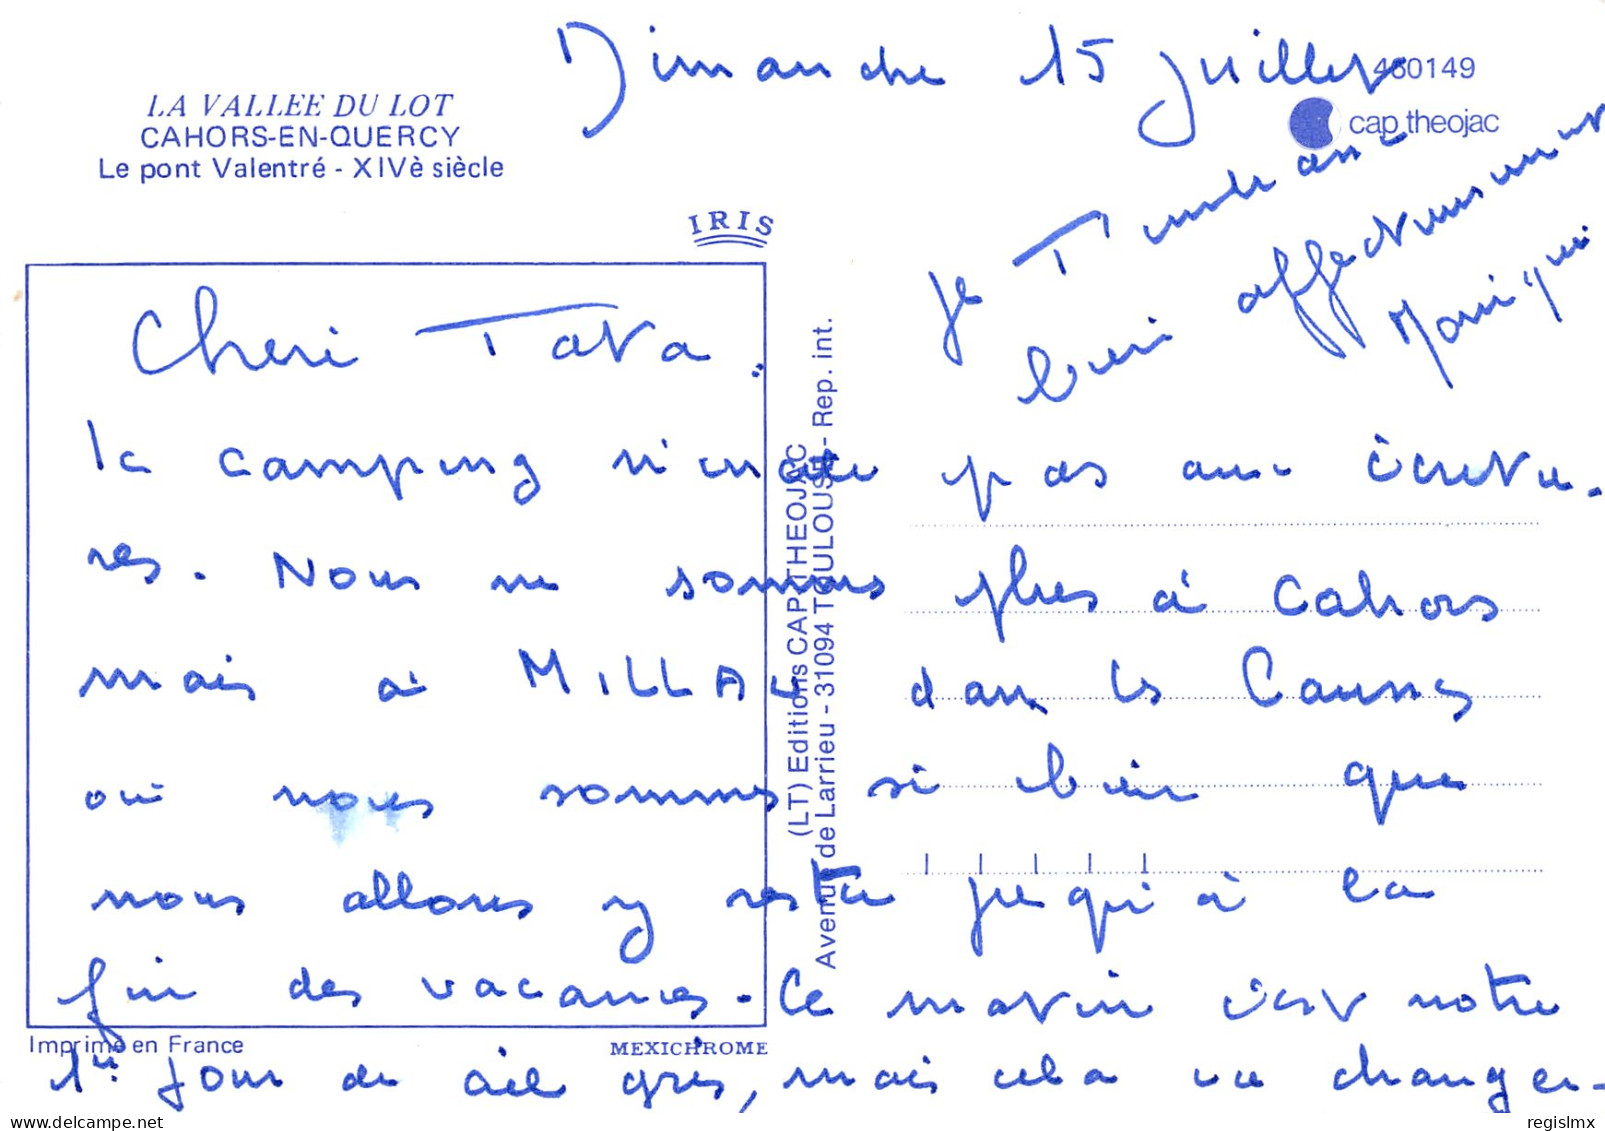 Dimanche 15 Juillet
460149
cap theojac
LA VALLEE DU LOT
CAHORS-EN-QUERCY
Le pont Valentré - XIVè siècle
IRIS
Cheri Tata.
le camping n'incite pas aux écritu-
res. Nous ne sommes plus à Cahors
mais à MILLAU dans les Causses
où nous sommes si bien que
nous allons y rester jusqu'à la
fin des vacances. Ce matin c'est notre
1er jour de ciel gris, mais cela va changer.
Je T'embrasse
bien affectueusement
Monique
(LT) Editions CAP-THEOJAC
Avenue de Larrieu - 31094 TOULOUSE - Rep. int.
Imprimé en France
MEXICHROME
regislmx